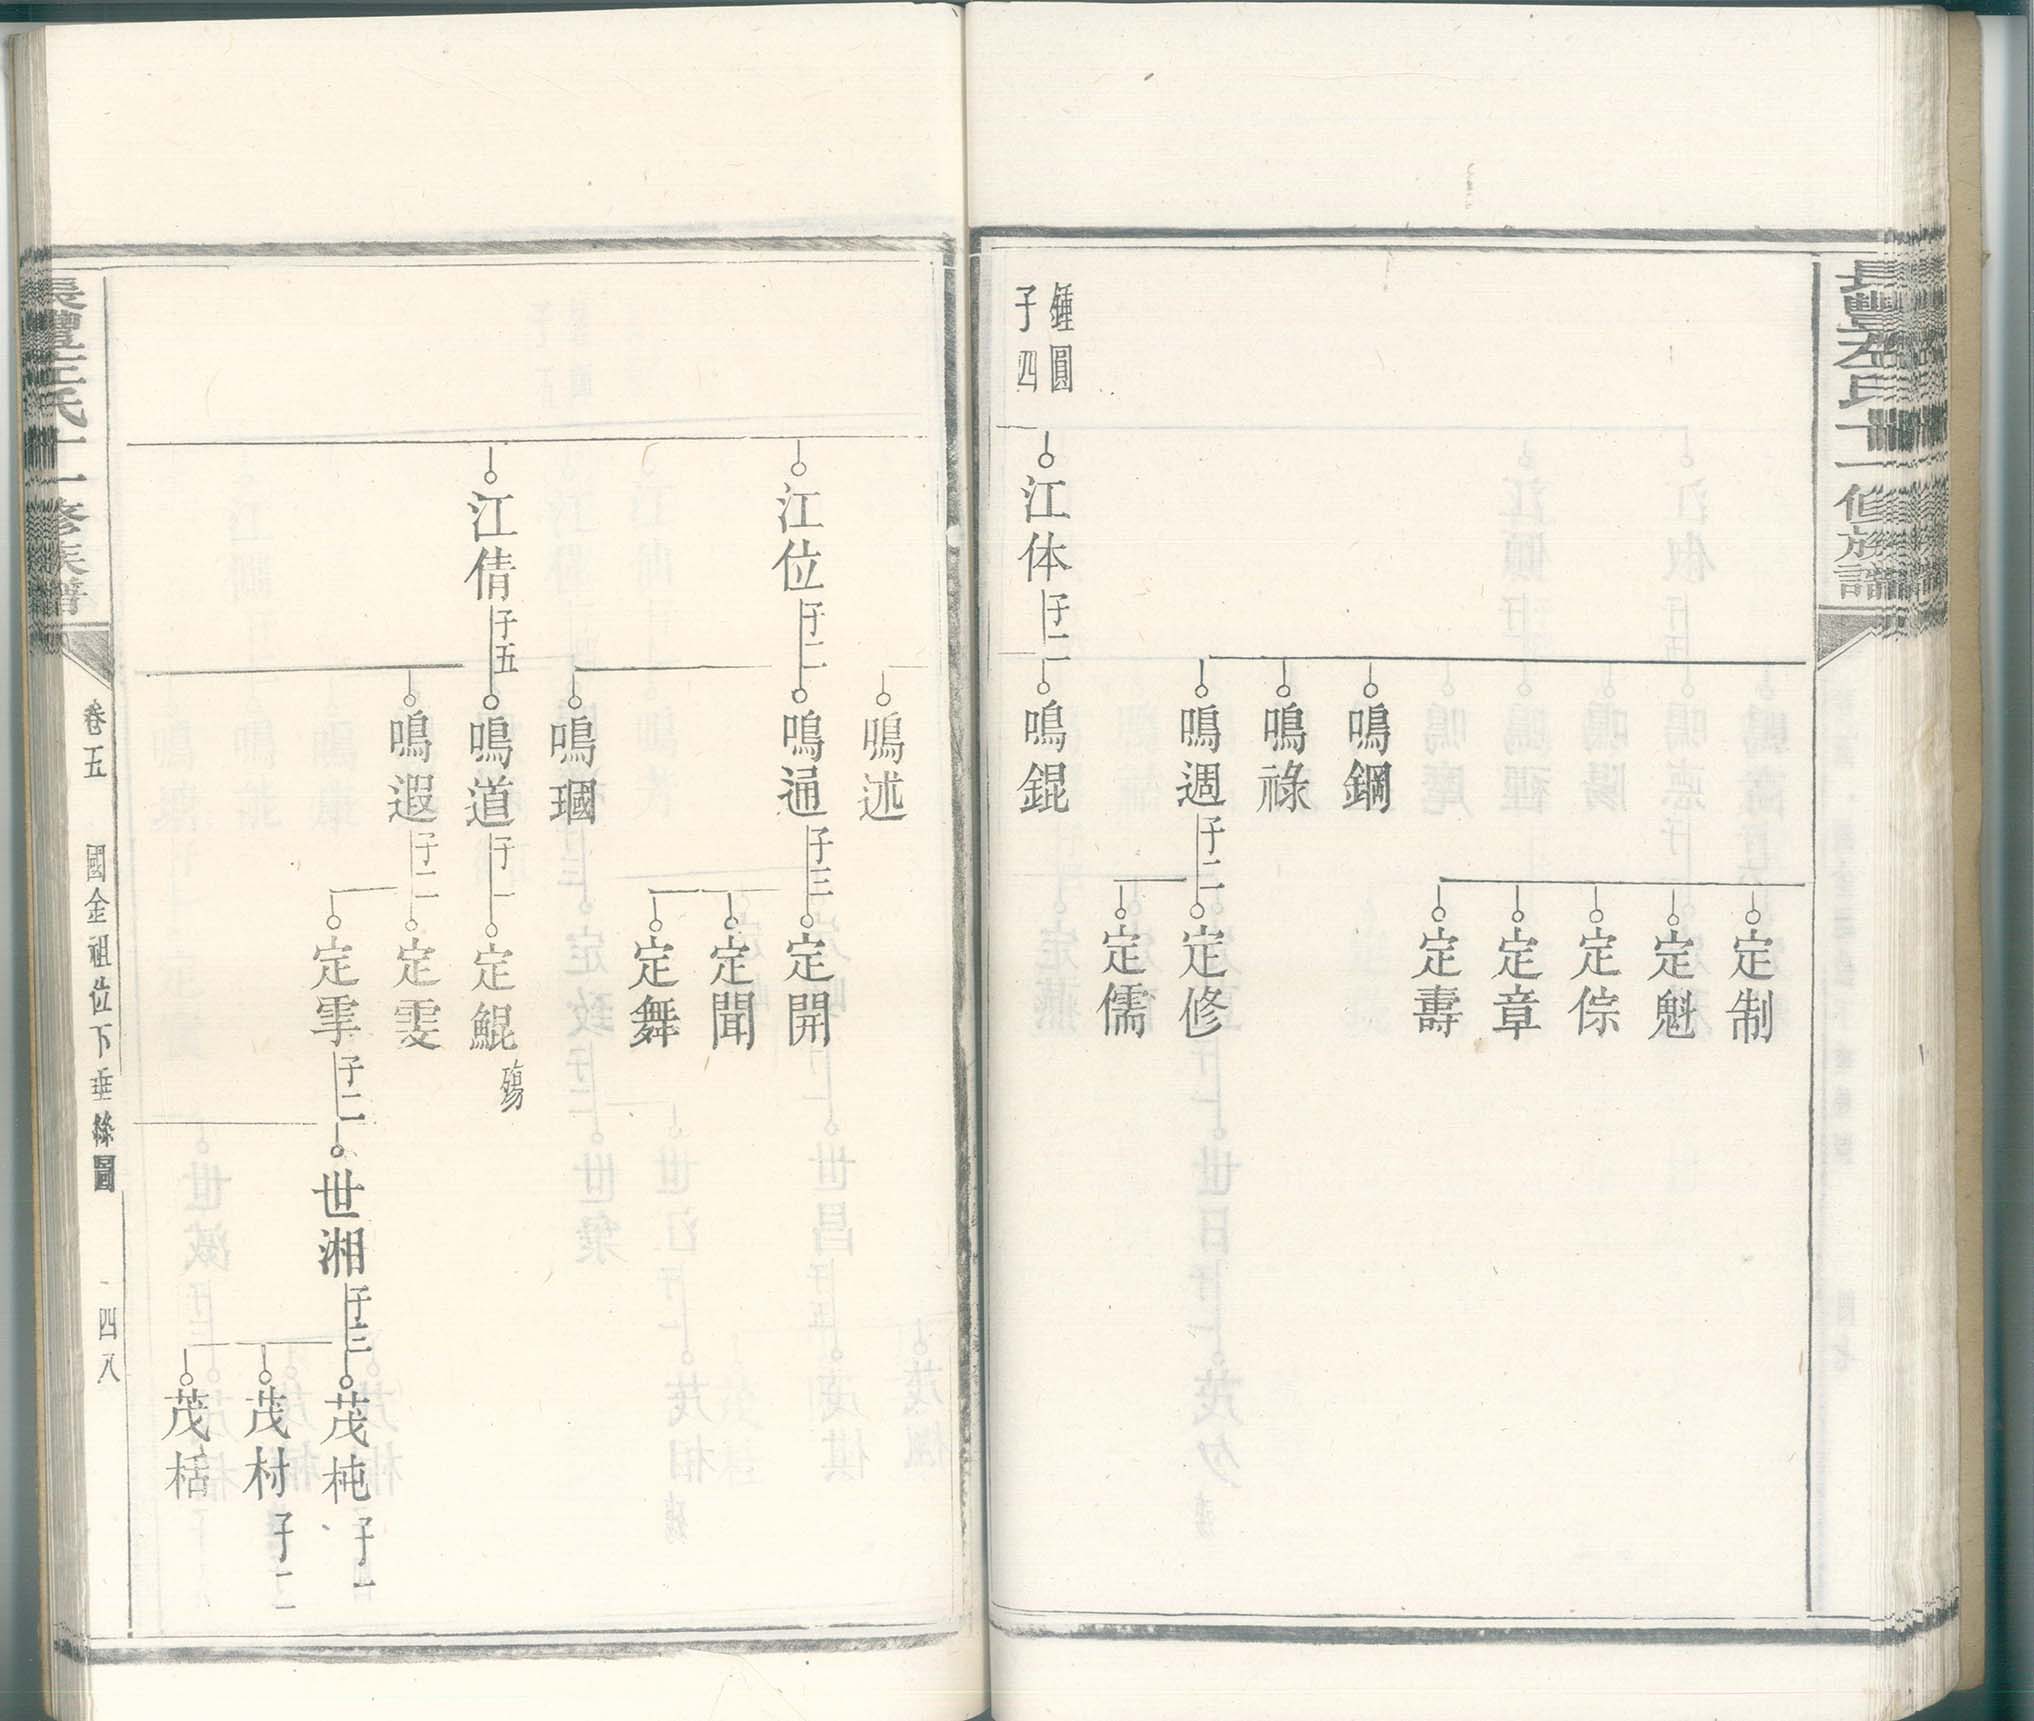 長豐左氏十一修族譜
鍾圓
子四
江体 子二
鳴鋼
鳴祿
鳴週 子二
鳴錕
定制
定魁
定倧
定章
定壽
定修
定儒
江位 子二
江倩 子五
鳴述
鳴通 子三
鳴瑂
鳴道 子一
鳴遐 子二
定開
定聞
定舞
定鯤 殤
定雯
定雽 子二
世湘 子三
茂杶 子一
茂材 子二
茂栝
長豐左氏十一修族譜
卷五
國金祖位下垂絲圖
四八